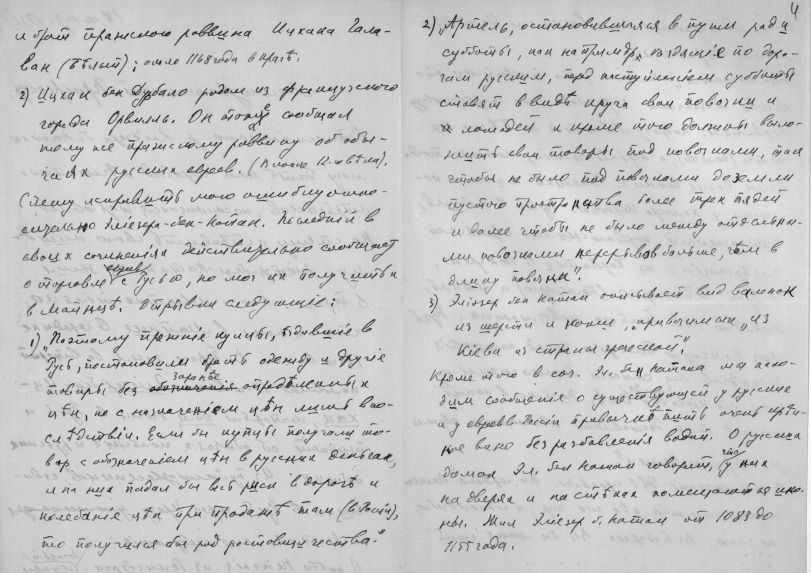 и брат пражского раввина Ицхака Гала-
ван (Бѣлый); около 1168 года в Прагѣ.
2) Ицхак бен Дурбало родом из французского
города Орвиль. Он тоже сообщал
тому же пражскому раввину об обы-
чаях русских евреев. (В начале 12-го вѣка).
Спѣшу исправить мою ошибку отно-
сительно Элиезер-бен-Натан. Последній в
своих сочиненіях действительно сообщает
о торговле евреев с Русью, но мог их получить и
в Майнцѣ. Отрывки следующіе:
1) "Поэтому прежніе купцы, ѣздившіе в
Русь, постановили брать одежду и другіе
товары без заранѣе опредѣленных
цѣн, но с назначеніем цѣн лишь впо-
слѣдствіи. Если бы купцы получали то-
вар с обозначеніем цѣн в русских деньгах,
и на них падал бы весь риск в дорогѣ и
колебаніе цѣн при продажѣ там (в Россіи),
то получился бы род ростовщичества."
4
2) "Артель, остановившаяся в пути ради
субботы, как напримѣр, ѣздящіе по доро-
гам русским, перед наступленіем субботы
ставят в видѣ круга свои повозки и
и лошадей и кроме того должны выло-
жить свои товары под повозками, так
чтобы не было под повозками до земли
пустого пространства более трех пядей
и далее чтобы не было между отдельны-
ми повозками перерывов больше, чѣм в
длину повозки".
3) Элiезер бен Натан описывает вид валенок
из шерсти и кожи, "привозимых" из
Кіева из страны греческой".
Кроме того в соч. Эл. бен Натана мы нахо-
дим сообщеніе о существующей у русских
и у евреев в Россіи привычкѣ пить очень крѣп-
кое вино без разбавленія водой. О русских
домах Эл. бен Натан говорит, что у них
на дверях и на стѣнах помещаются ико-
ны. Жил Элиезер б. Натан от 1083 до
1155 года.